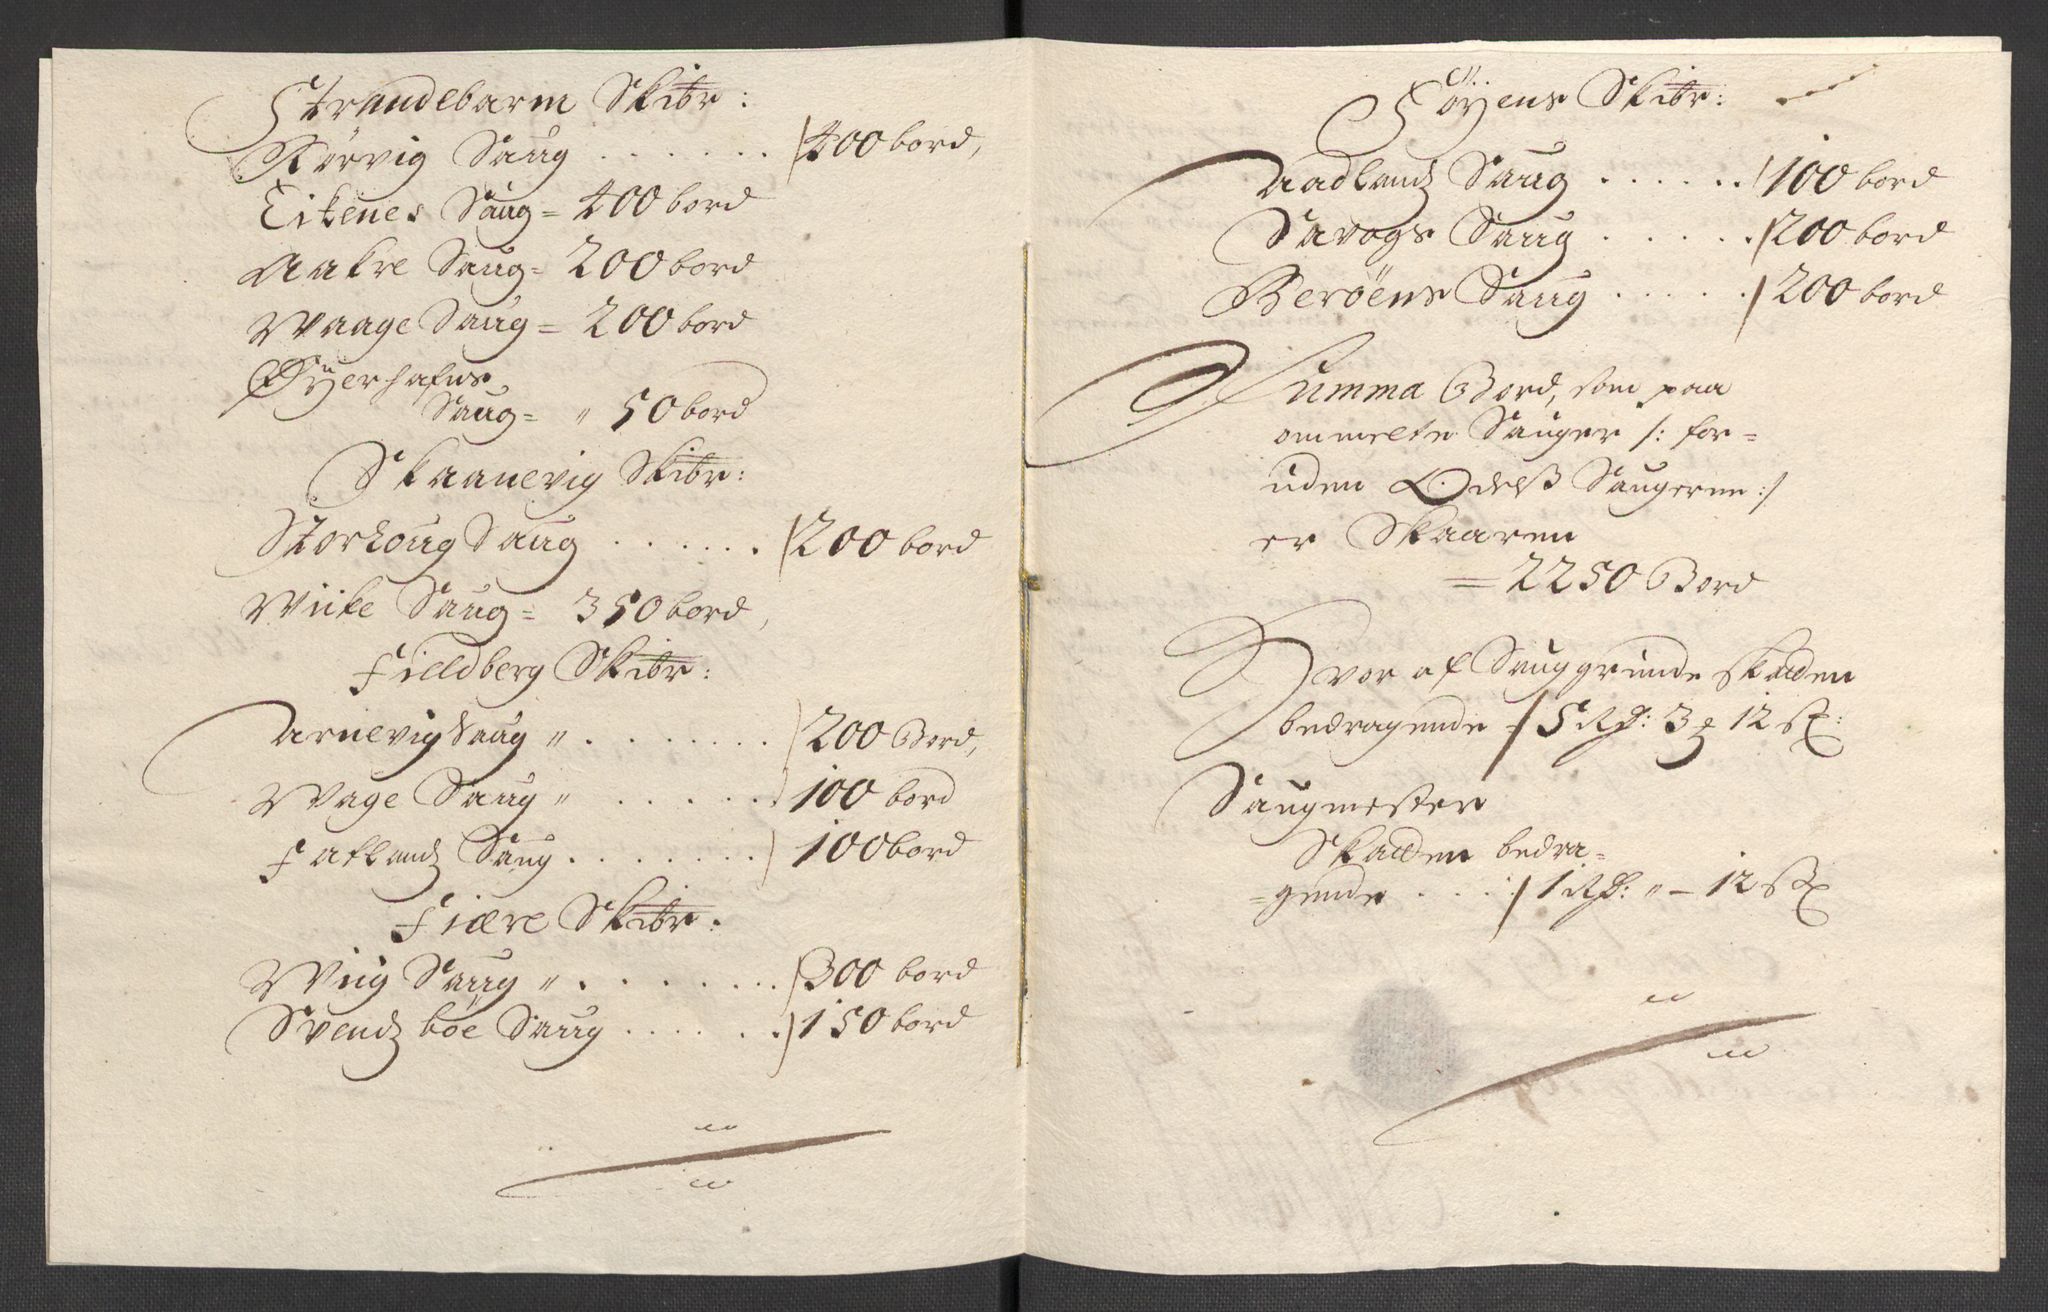 Strandebarm Skibr:
Rørvig Saug . . . . . . 400 bord,
Eikenes Saug = 400 bord
Aakre Saug = 200 bord
Waage Saug = 200 bord
Øyerhafns
Saug = " 50 bord
Skaanevig Skibr:
Storhoug Saug . . . . . . 200 bord
Wiike Saug = 350 bord,
Fieldberg Skibr:
Arnevig Saug " . . . . . . . 200 Bord,
Wage Saug " . . . . . . 100 bord
Fatland Saug . . . . . . . 100 bord
Fiære Skibr:
Wiig Saug " . . . . . . . . 300 bord
Svendz böe Saug . . . . . . . 150 bord
Föyens Skibr:
Aadlandz Saug . . . . . . 100 bord
Savogs Saug . . . . . . 200 bord
Beröens Saug . . . . . 200 bord
Summa Bord, som paa
ommelte Sauger /: for=
uden Odelß Saugerne :/
er Skaaren
= 2250 Bord
Hvor af Sauggrunde skatten
bedragende = 5 Rd: 3 12 s:
Saugmester
Skatten bedra=
=gende . . . . 1 Rd: " – 12 s